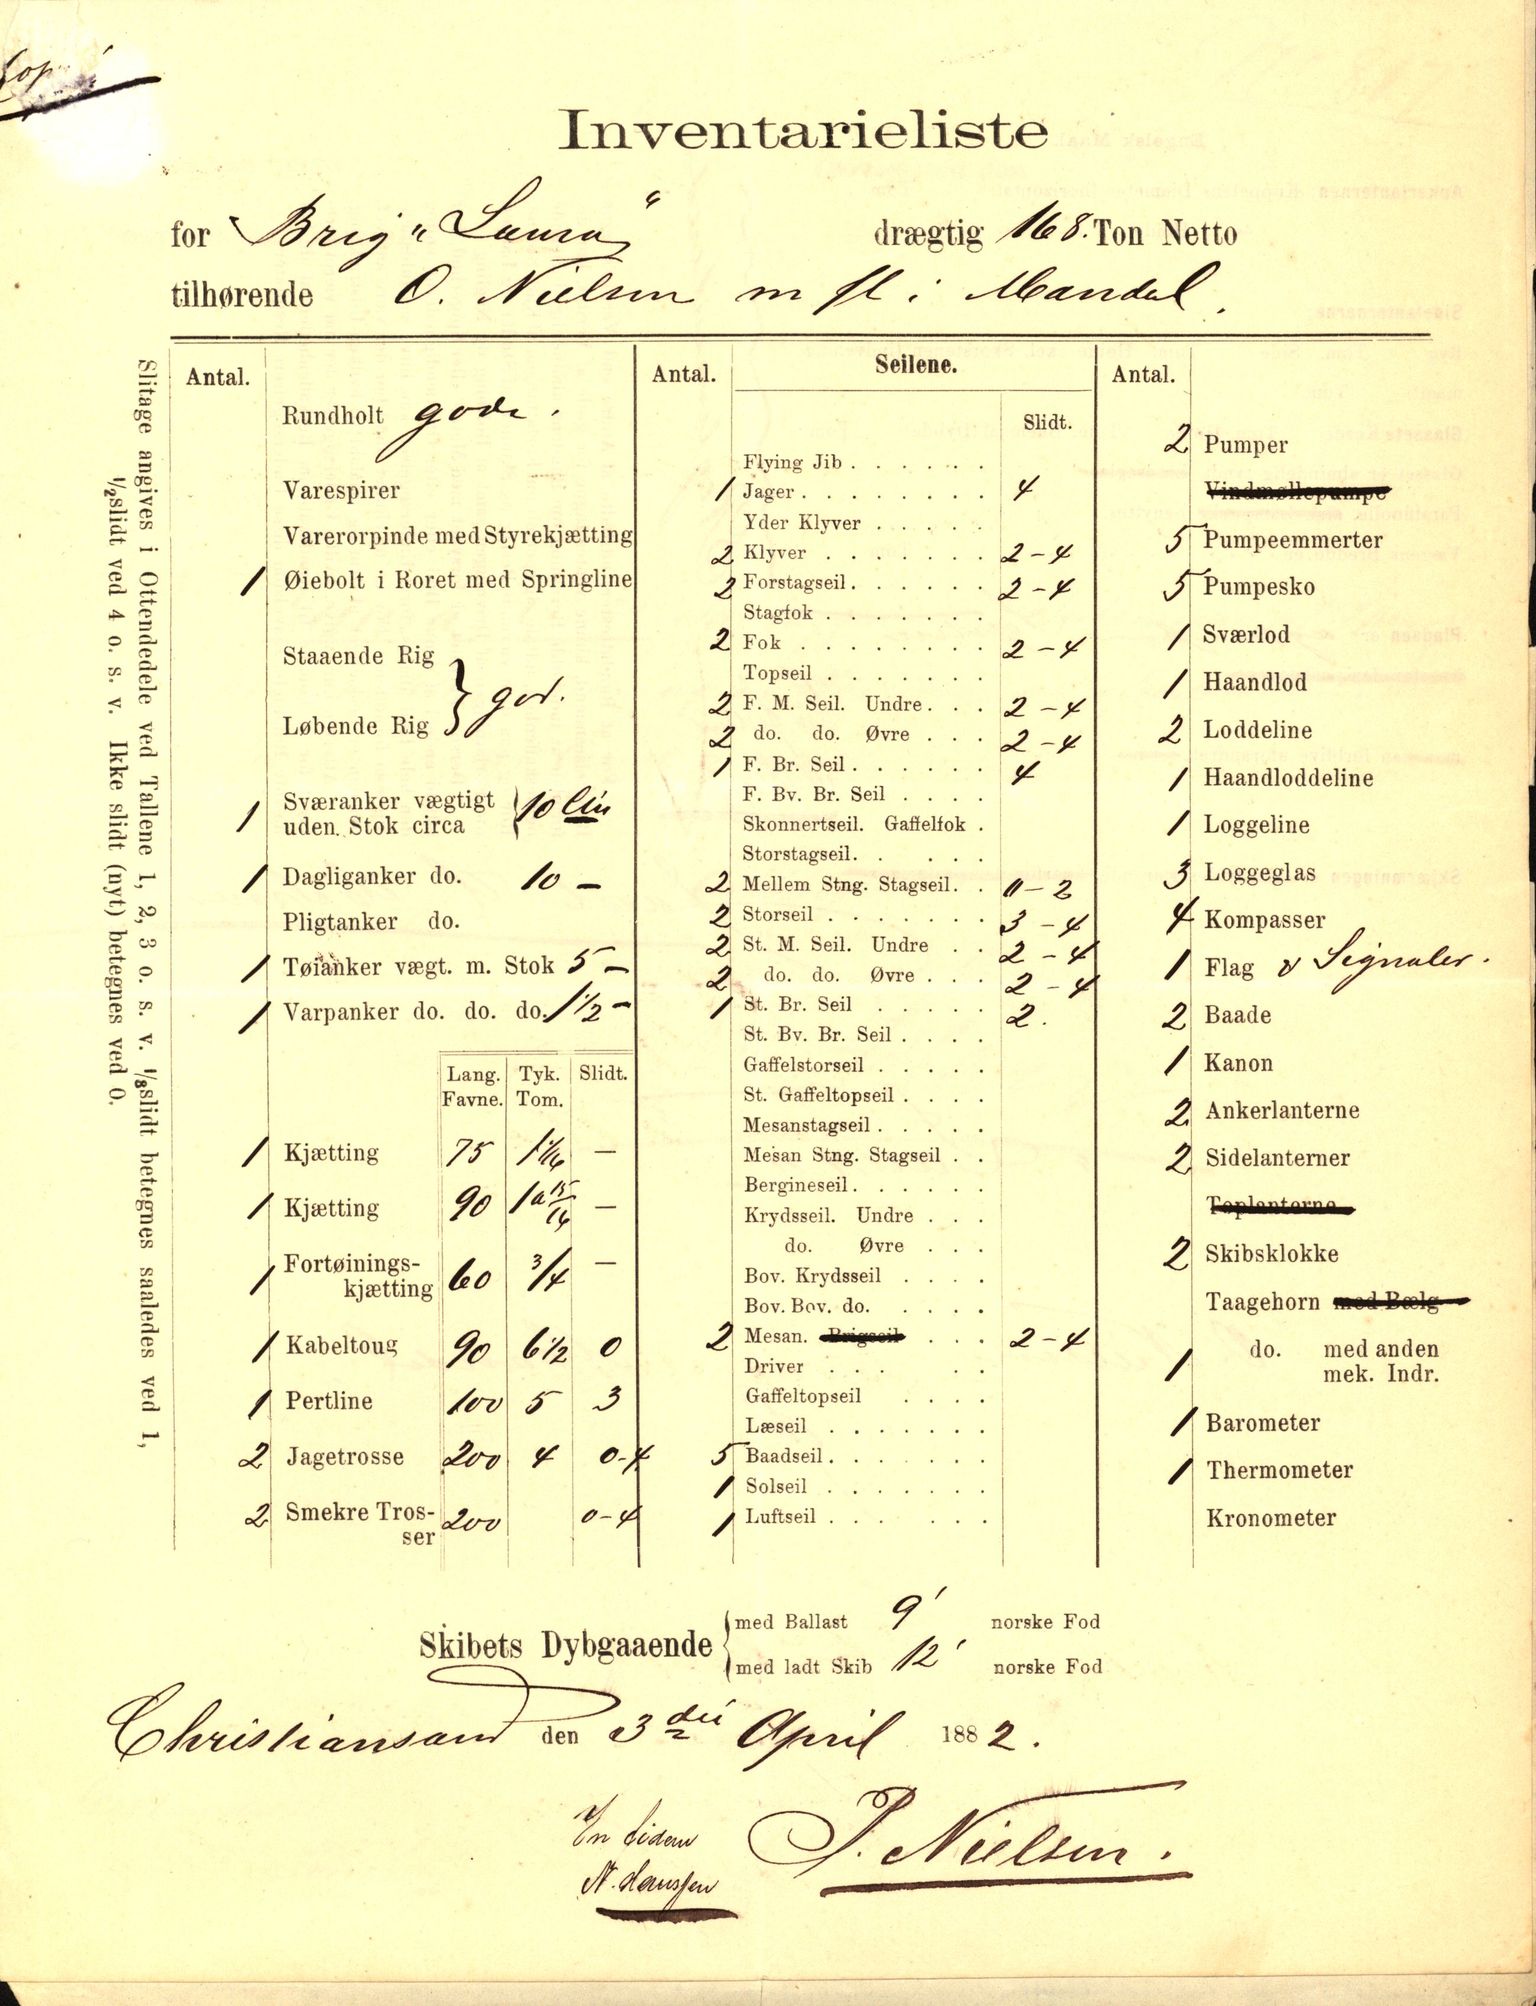 Copi
Inventarieliste
for Brig "Laura" drægtig 168. Ton Netto
tilhørende O. Nielsen m fl i Mandal.
Slitage angives i Ottendedele ved Tallene 1, 2, 3 o. s. v. 1/8 slidt betegnes saaledes ved 1,
1/2 slidt ved 4 o. s. v. Ikke slidt (nyt) betegnes ved 0.
Antal.
Rundholt gode.
Varespirer
Varerorpinde med Styrekjætting
1 Øiebolt i Roret med Springline
Staaende Rig
Løbende Rig } god.
1 Sværanker vægtigt
uden Stok circa { 10
1 Dagliganker do. 10 —
Pligtanker do.
1 Tøianker vægt. m. Stok 5 —
1 Varpanker do. do. do. 1 1/2 —
Lang. Tyk. Slidt.
Favne. Tom.
1 Kjætting 75 1 1/16 —
1 Kjætting 90 1 a 15/16 —
1 Fortøinings-
kjætting 60 3/4 —
1 Kabeltoug 90 6 1/2 0
1 Pertline 100 5 3
2 Jagetrosse 200 4 0-4
2 Smekre Tros-
ser 200 0-4
Antal. Seilene.
Slidt.
Flying Jib . . . . . .
1 Jager . . . . . . . . 4
Yder Klyver . . . . .
2 Klyver . . . . . . . 2-4
2 Forstagseil . . . . . . 2-4
Stagfok . . . . . . .
2 Fok . . . . . . . . 2-4
Topseil . . . . . . .
2 F. M. Seil. Undre . . . 2-4
2 do. do. Øvre . . . 2-4
1 F. Br. Seil . . . . . . 4
F. Bv. Br. Seil . . . .
Skonnertseil. Gaffelfok .
Storstagseil . . . . .
2 Mellem Stng. Stagseil . . 0-2
2 Storseil . . . . . . . 3-4
2 St. M. Seil. Undre . . 2-4
2 do. do. Øvre . . . 2-4
1 St. Br. Seil . . . . . 2.
St. Bv. Br. Seil . . . .
Gaffelstorseil . . . . .
St. Gaffeltopseil . . . .
Mesanstagseil . . . . .
Mesan Stng. Stagseil . .
Bergineseil . . . . . .
Krydsseil. Undre . . .
do. Øvre . . .
Bov. Krydsseil . . . .
Bov. Bov. do. . . . .
2 Mesan. Brigseil . . . 2-4
Driver . . . . .
Gaffeltopseil . . . .
Læseil . . . . . . .
5 Baadseil . . . . . . .
1 Solseil . . . . . . .
1 Luftseil . . . . . .
Antal.
2 Pumper
Vindmøllepumpe
5 Pumpeemmerter
5 Pumpesko
1 Sværlod
1 Haandlod
2 Loddeline
1 Haandloddeline
1 Loggeline
3 Loggeglas
4 Kompasser
1 Flag & Signaler.
2 Baade
1 Kanon
2 Ankerlanterne
2 Sidelanterner
Toplanterne
2 Skibsklokke
Taagehorn med Bælg
1 do. med anden
mek. Indr.
1 Barometer
1 Thermometer
Kronometer
Skibets Dybgaaende { med Ballast 9' norske Fod
med ladt Skib 12' norske Fod
Christiansand den 3die April 1882.
P. Nielsen.
N. Hanssen